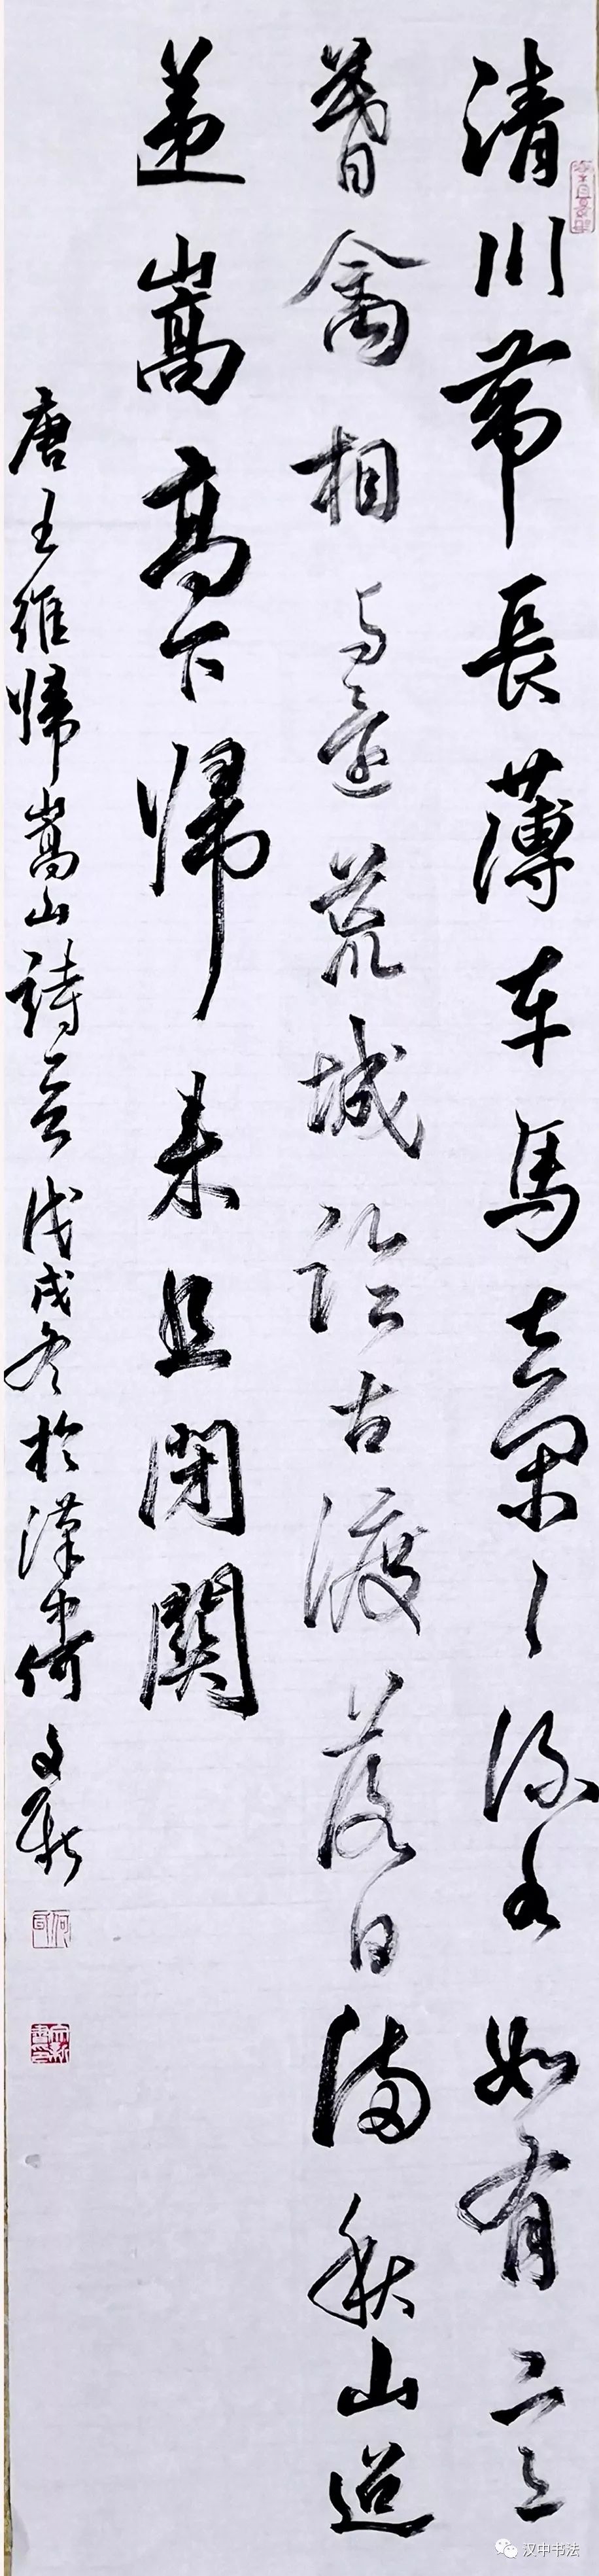 清川帶長薄车馬去閑〻流水如有意
暮禽相與還荒城臨古渡落日滿秋山迢
遞嵩高下歸來且閉關
唐王維歸嵩山詩戊戌冬於漢中何文新
汉中书法